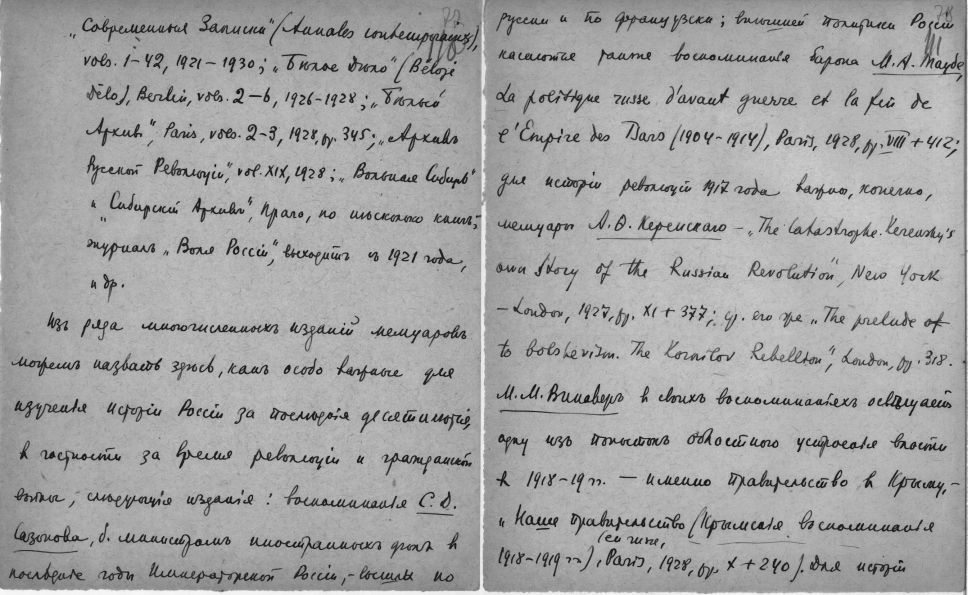 77
„Современныя Записки" (Annales contemporaines),
vols. 1–42, 1921–1930; „Былое Дѣло" (Běloje
Dělo), Berlin, vols. 2–6, 1926–1928; „Бѣлый
Архивъ", Paris, vols. 2–3, 1928, pp. 345; „Архивъ
Русской Революціи", vol. XIX, 1928; „Вольная Сибирь"
и „Сибирскій Архивъ", Прага, по нѣсколько книгъ;
журналъ „Воля Россіи", выходитъ съ 1921 года,
и др.
Изъ ряда многочисленныхъ изданій мемуаровъ
можемъ назвать здѣсь, какъ особо важные для
изученія исторіи Россіи за послѣднія десятилѣтія,
въ частности за время революціи и гражданской
войны, слѣдующія изданія: воспоминанія С. Д.
Сазонова, б. министромъ иностранныхъ дѣлъ въ
послѣдніе годы Императорской Россіи, – вышли по
78
русски и по французски; внѣшней политики Россіи
касаются также воспоминанія барона М. А. Таубе,
La politique russe d'avant guerre et la fin de
l'Empire des Tsars (1904–1914), Paris, 1928, pp. VIII + 412;
для исторіи революціи 1917 года важны, конечно,
мемуары А. Ѳ. Керенскаго – „The Catastrophe. Kerensky's
own Story of the Russian Revolution", New York
– London, 1927, pp. XI + 377; ср. его же „The prelude of
to bolshevism. The Kornilov Rebellion", London, pp. 318.
М. М. Винаверъ въ своихъ воспоминаніяхъ освѣщаетъ
одну изъ попытокъ областного устроенія власти
въ 1918–19 гг. — именно правительство въ Крыму, –
„Наше правительство (Крымскія воспоминанія
1918–1919 гг.), Paris, 1928, pp. X + 240). Для исторіи